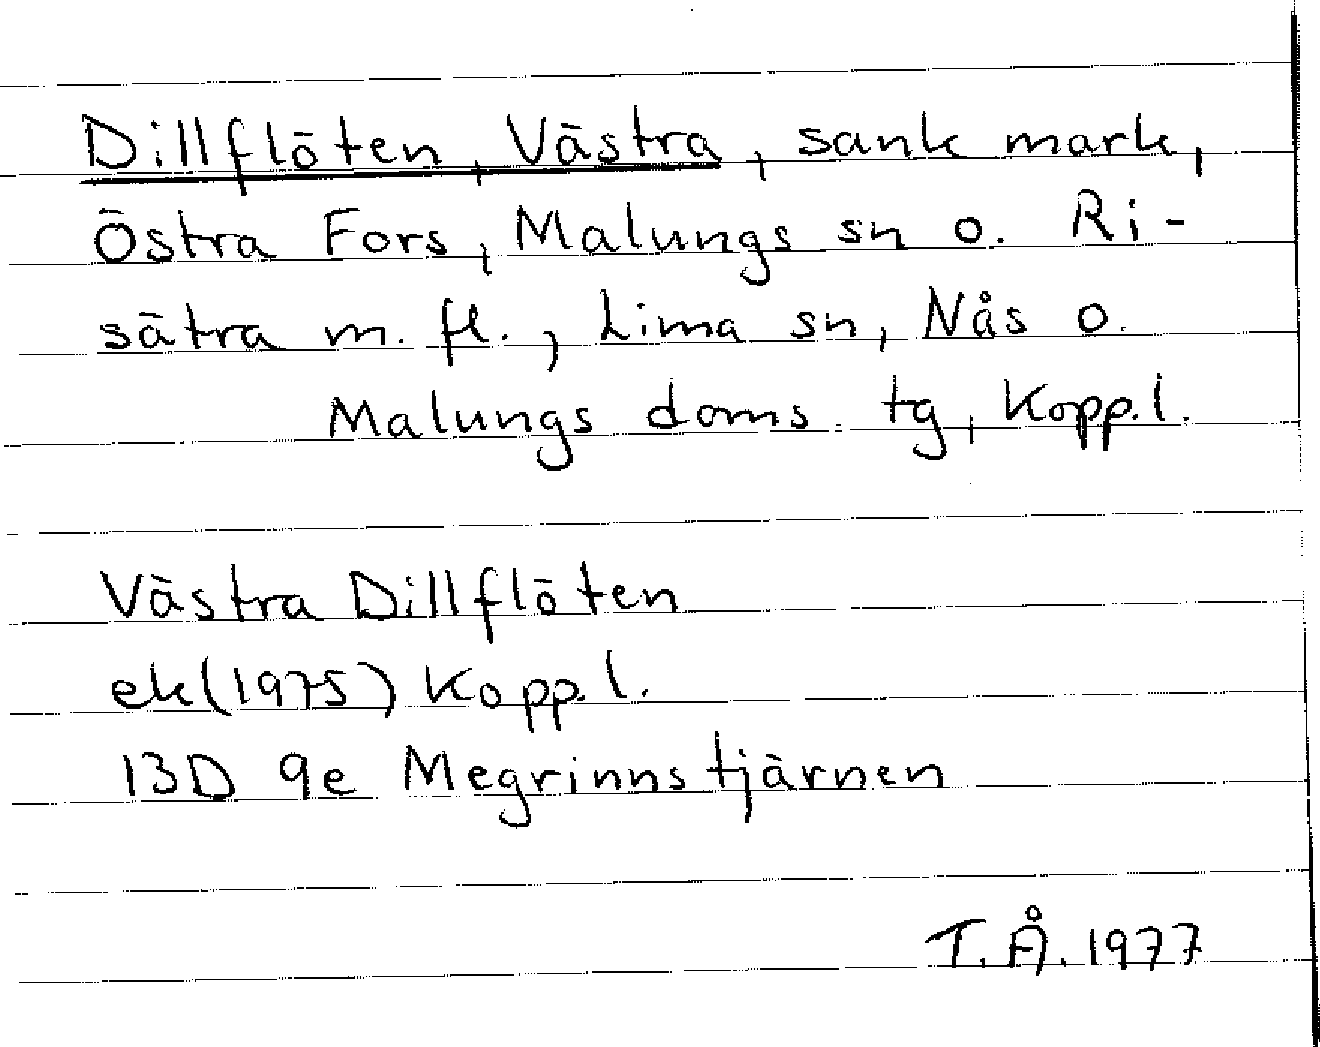 Dillflöten, Västra, sank mark,
Östra Fors, Malungs sn o. Ri-
sätra m. fl., Lima sn, Nås o.
Malungs doms. tg, Kopp.l.
Västra Dillflöten
ek(1975) Kopp.l.
13D 9e Megrinnstjärnen
T.Å. 1977